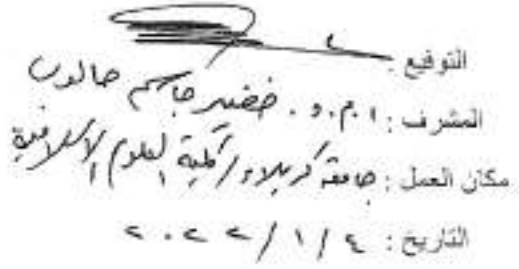 التوقيع :
المشرف : ا.م.د. خضير جاسم حالوب
مكان العمل : جامعة كربلاء / كلية العلوم الاسلامية
التاريخ : ٤ / ١ / ٢٠٢٢